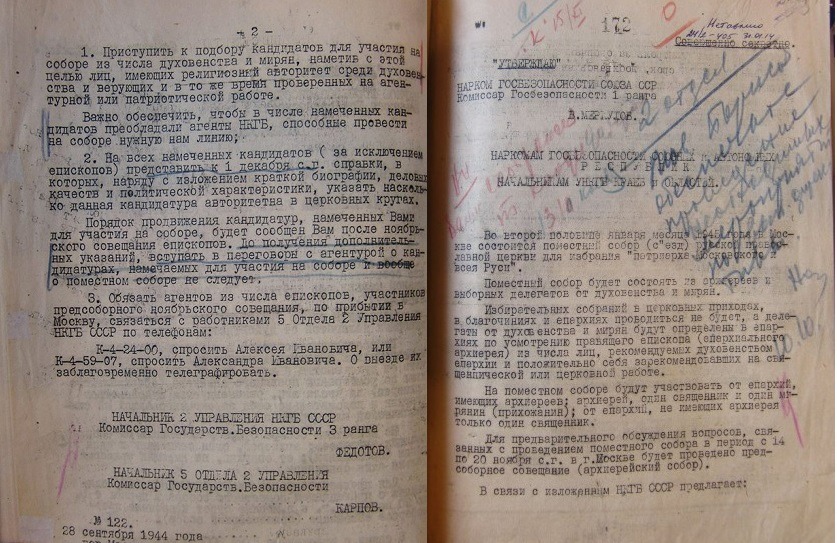 - 2 -
1. Приступить к подбору кандидатов для участия на
соборе из числа духовенства и мирян, наметив с этой
целью лиц, имеющих религиозный авторитет среди духовен-
ства и верующих и в то же время проверенных на аген-
турной или патриотической работе.
Важно обеспечить, чтобы в числе намеченных кан-
дидатов преобладали агенты НКГБ, способные провести
на соборе нужную нам линию;
2. На всех намеченных кандидатов ( за исключением
епископов) представить к 1 декабря с.г. справки, в
которых, наряду с изложением краткой биографии, деловых
качеств и политической характеристики, указать насколь-
ко данная кандидатура авторитетна в церковных кругах.
Порядок продвижения кандидатур, намеченных Вами
для участия на соборе, будет сообщен Вам после ноябрь-
ского совещания епископов. До получения дополнитель-
ных указаний, вступать в переговоры с агентурой о кан-
дидатурах, намечаемых для участия на соборе и вообще
о поместном соборе не следует.
3. Обязать агентов из числа епископов, участников
предсоборного ноябрьского совещания, по прибытии в
Москву, связаться с работниками 5 Отдела 2 Управления
НКГБ СССР по телефонам:
К-4-24-00, спросить Алексея Ивановича, или
К-4-59-07, спросить Александра Ивановича. О выезде их
заблаговременно телеграфировать.
НАЧАЛЬНИК 2 УПРАВЛЕНИЯ НКГБ СССР
Комиссар Государств.Безопасности 3 ранга
ФЕДОТОВ.
НАЧАЛЬНИК 5 ОТДЕЛА 2 УПРАВЛЕНИЯ
Комиссар Государств.Безопасности
КАРПОВ.
№ 122.
28 сентября 1944 года
172
Совершенно секретно.
"УТВЕРЖДАЮ"
НАРКОМ ГОСБЕЗОПАСНОСТИ СОЮЗА ССР
Комиссар Госбезопасности 1 ранга
В.МЕРКУЛОВ.
НАРКОМАМ ГОСБЕЗОПАСНОСТИ СОЮЗНЫХ и АВТОНОМНЫХ
РЕСПУБЛИК
НАЧАЛЬНИКАМ УНКГБ КРАЕВ и ОБЛАСТЕЙ.
Во второй половине января месяца 1945 года в Мос-
кве состоится поместный собор (с"езд) русской право-
славной церкви для избрания "патриарха Московского и
всея Руси".
Поместный собор будет состоять из архиереев и
выборных делегатов от духовенства и мирян.
Избирательных собраний в церковных приходах,
в благочиниях и епархиях проводиться не будет, а деле-
гаты от духовенства и мирян будут определены в епар-
хиях по усмотрению правящего епископа (епархиального
архиерея) из числа лиц, рекомендуемых духовенством
епархии и положительно себя зарекомендовавших на свя-
щеннической или церковной работе.
На поместном соборе будут участвовать от епархий,
имеющих архиереев; архиерей, один священник и один ми-
рянин (прихожанин); от епархий, не имеющих архиерея -
только один священник.
Для предварительного обсуждения вопросов, свя-
занных с проведением поместного собора в период с 14
по 20 ноября с.г. в г.Москве будет проведено пред-
соборное совещание (архиерейский собор).
В связи с изложенным НКГБ СССР предлагает: